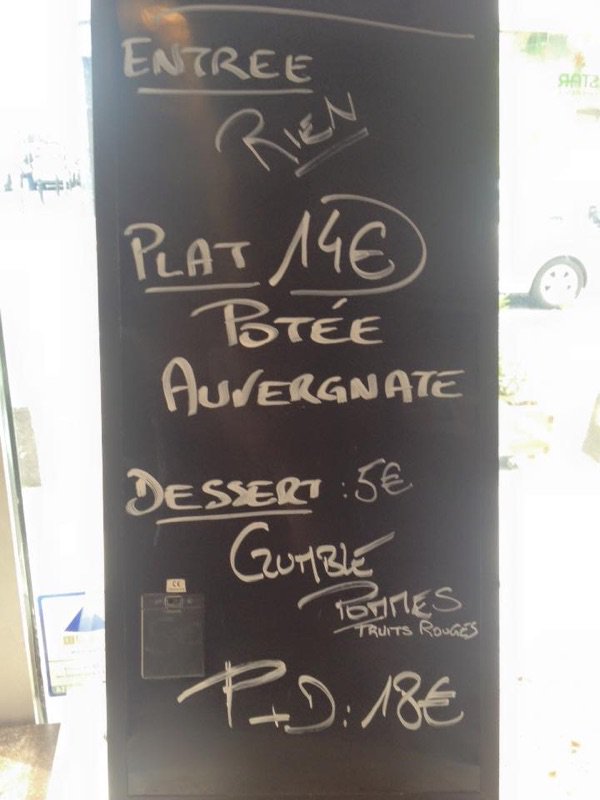 ENTREE
RIEN
PLAT 14€
POTÉE
AUVERGNATE
DESSERT : 5€
CRUMBLE
POMMES
FRUITS ROUGES
P+D : 18€
STAR
CE